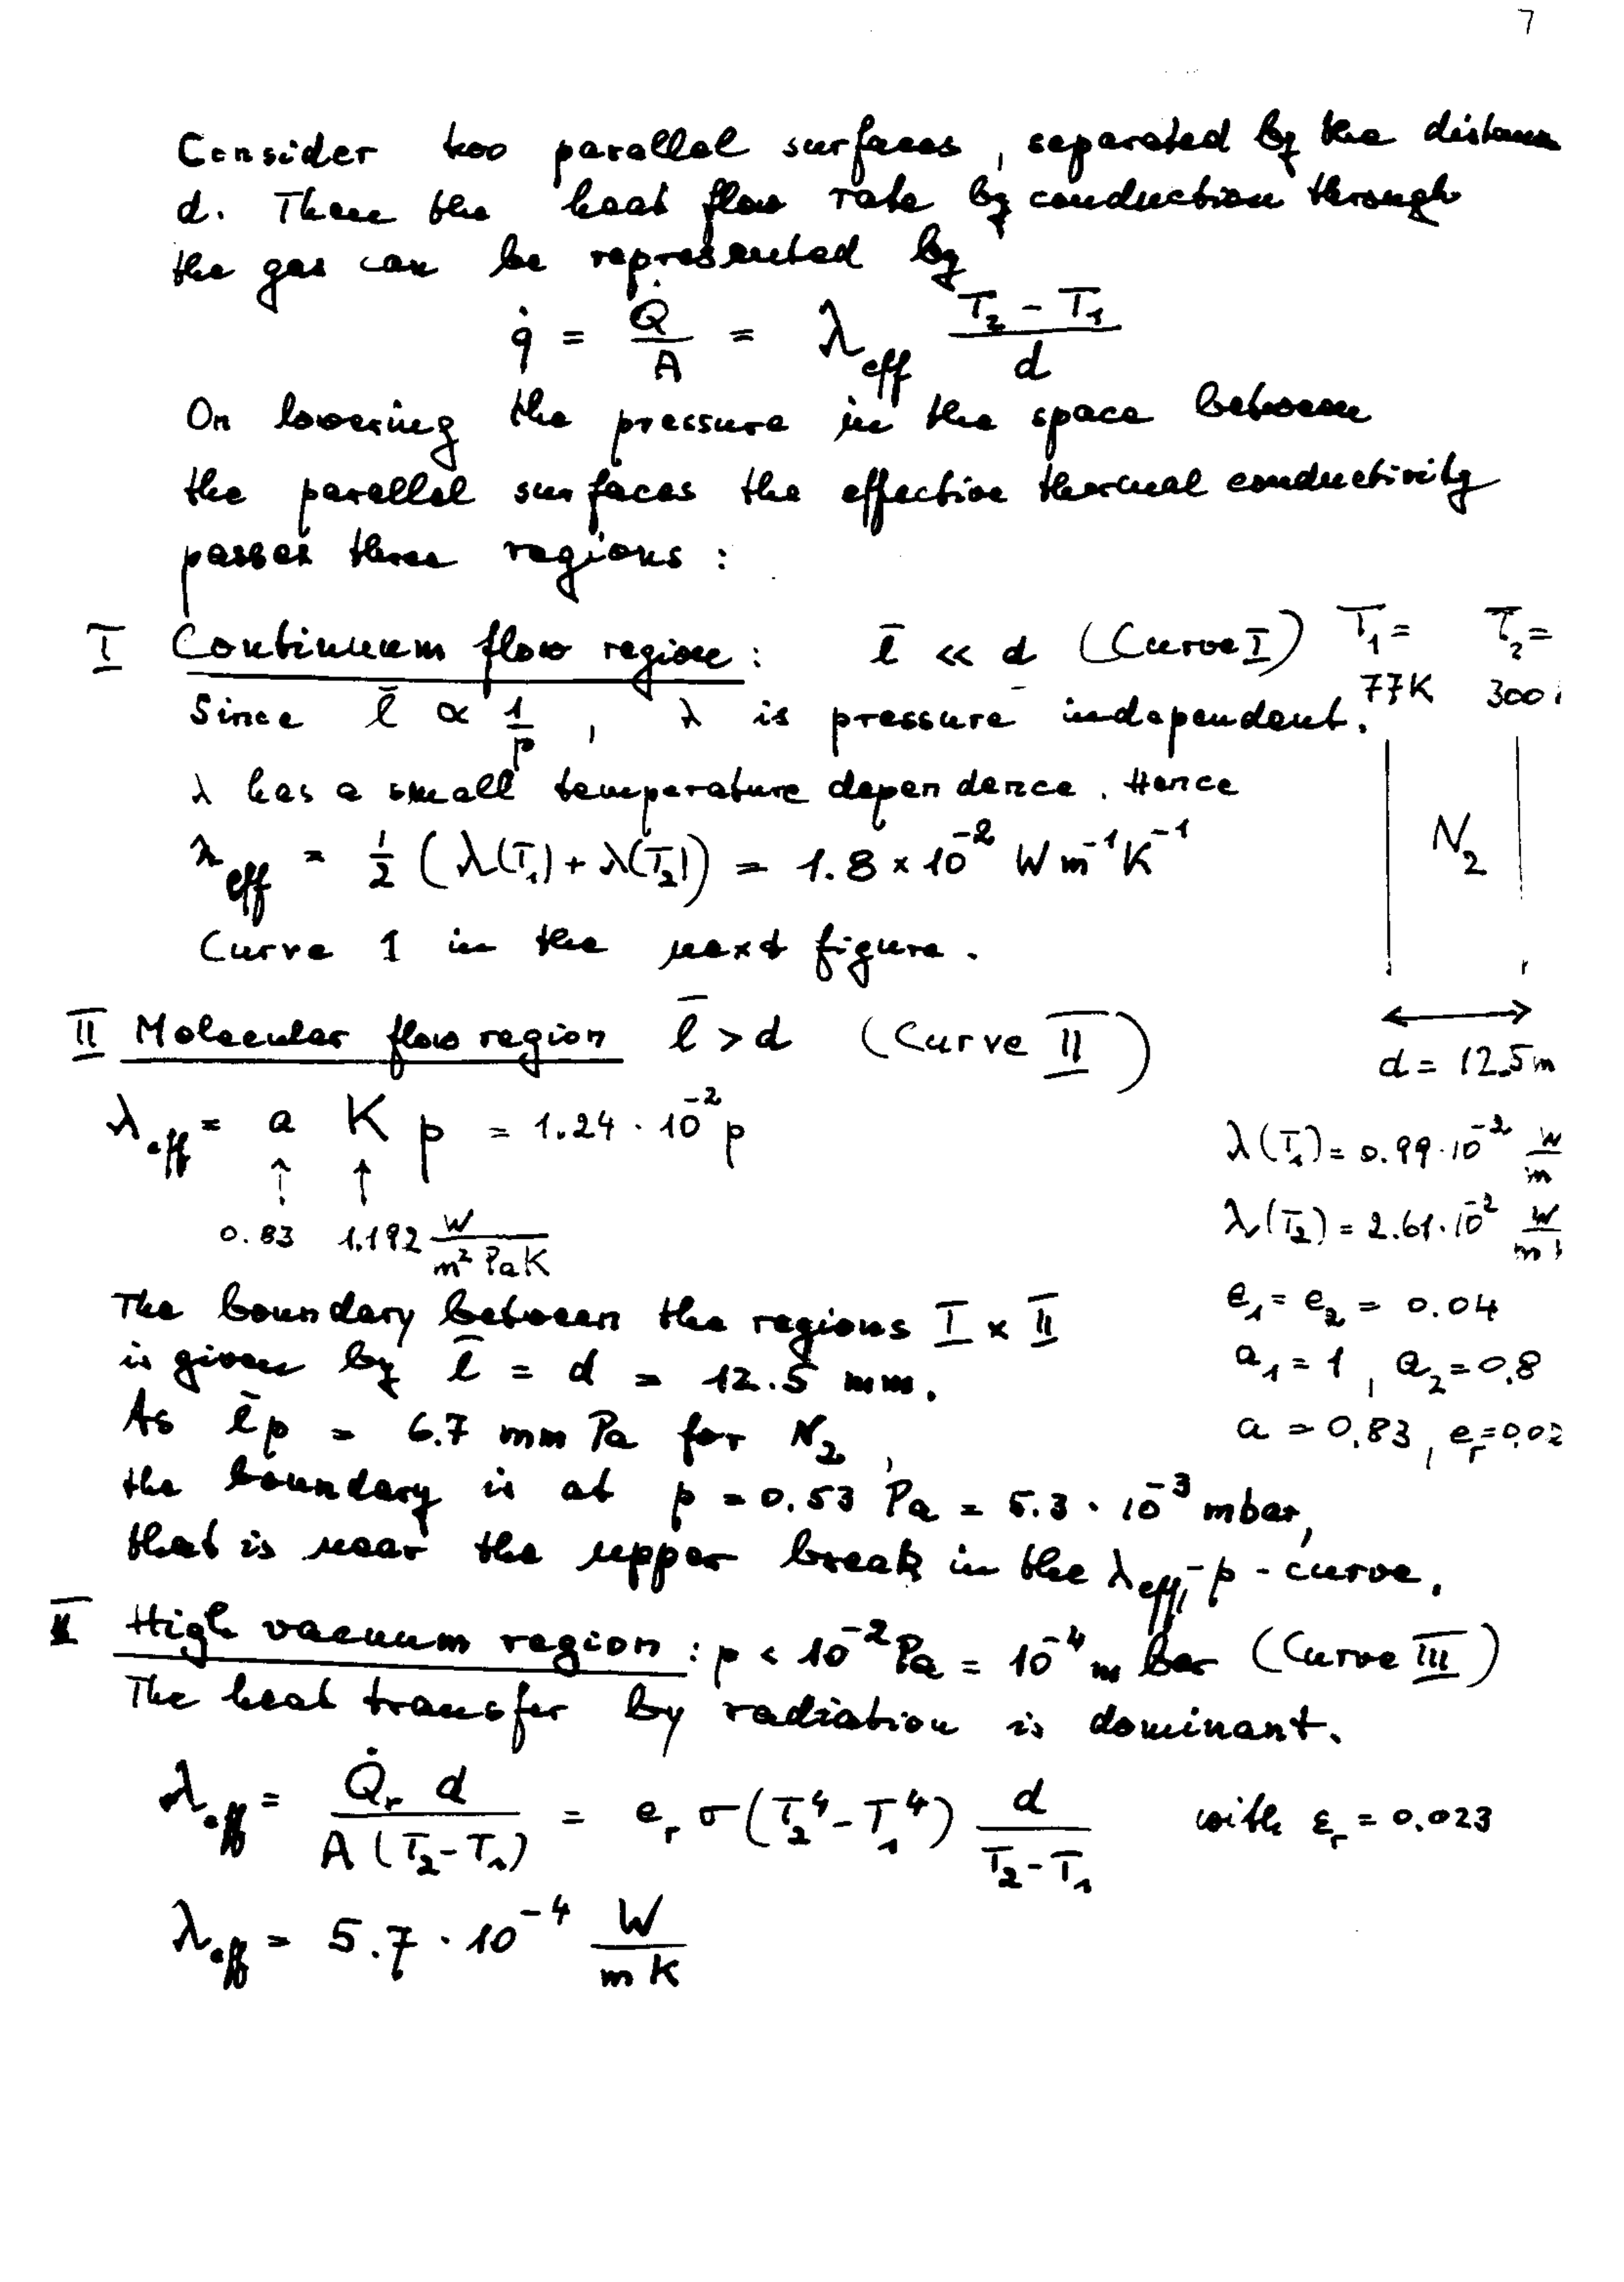 7
Consider two parallel surfaces, separated by the distance
d. Then the heat flow rate by conduction through
the gas can be represented by
q̇ = Q̇/A = λ_eff (T₂ - T₁)/d
On lowering the pressure in the space between
the parallel surfaces the effective thermal conductivity
passes three regions :
I Continuum flow region : l̄ << d (Curve I) T₁ = T₂ =
77K 300
Since l̄ ∝ 1/p , λ is pressure independent.
λ has a small temperature dependence. Hence
λ_eff = 1/2 (λ(T₁) + λ(T₂)) = 1.8 × 10⁻² W m⁻¹ K⁻¹
N₂
Curve 1 in the next figure.
II Molecular flow region l̄ > d (Curve II)
d = 12.5m
λ_eff = a K p = 1.24 · 10⁻² p
λ(T₁) = 0.99 · 10⁻² W/m
0.83 1.192 W/(m² Pa K)
λ(T₂) = 2.61 · 10⁻² W/m
The boundary between the regions I x II
e₁ = e₂ = 0.04
is given by l̄ = d = 12.5 mm.
a₁ = 1 , a₂ = 0.8
As l̄p = 6.7 mm Pa for N₂ ,
a = 0.83 , e_r = 0.02
the boundary is at p = 0.53 Pa = 5.3 · 10⁻³ mbar,
that is near the upper break in the λ_eff - p - curve.
High vacuum region : p < 10⁻² Pa = 10⁻⁴ m bar (Curve III)
The heat transfer by radiation is dominant.
λ_eff = Q̇_r d / A (T₂ - T₁) = e_r σ (T₂⁴ - T₁⁴) d/(T₂ - T₁) with ε_r = 0.023
λ_eff = 5.7 · 10⁻⁴ W/(m K)